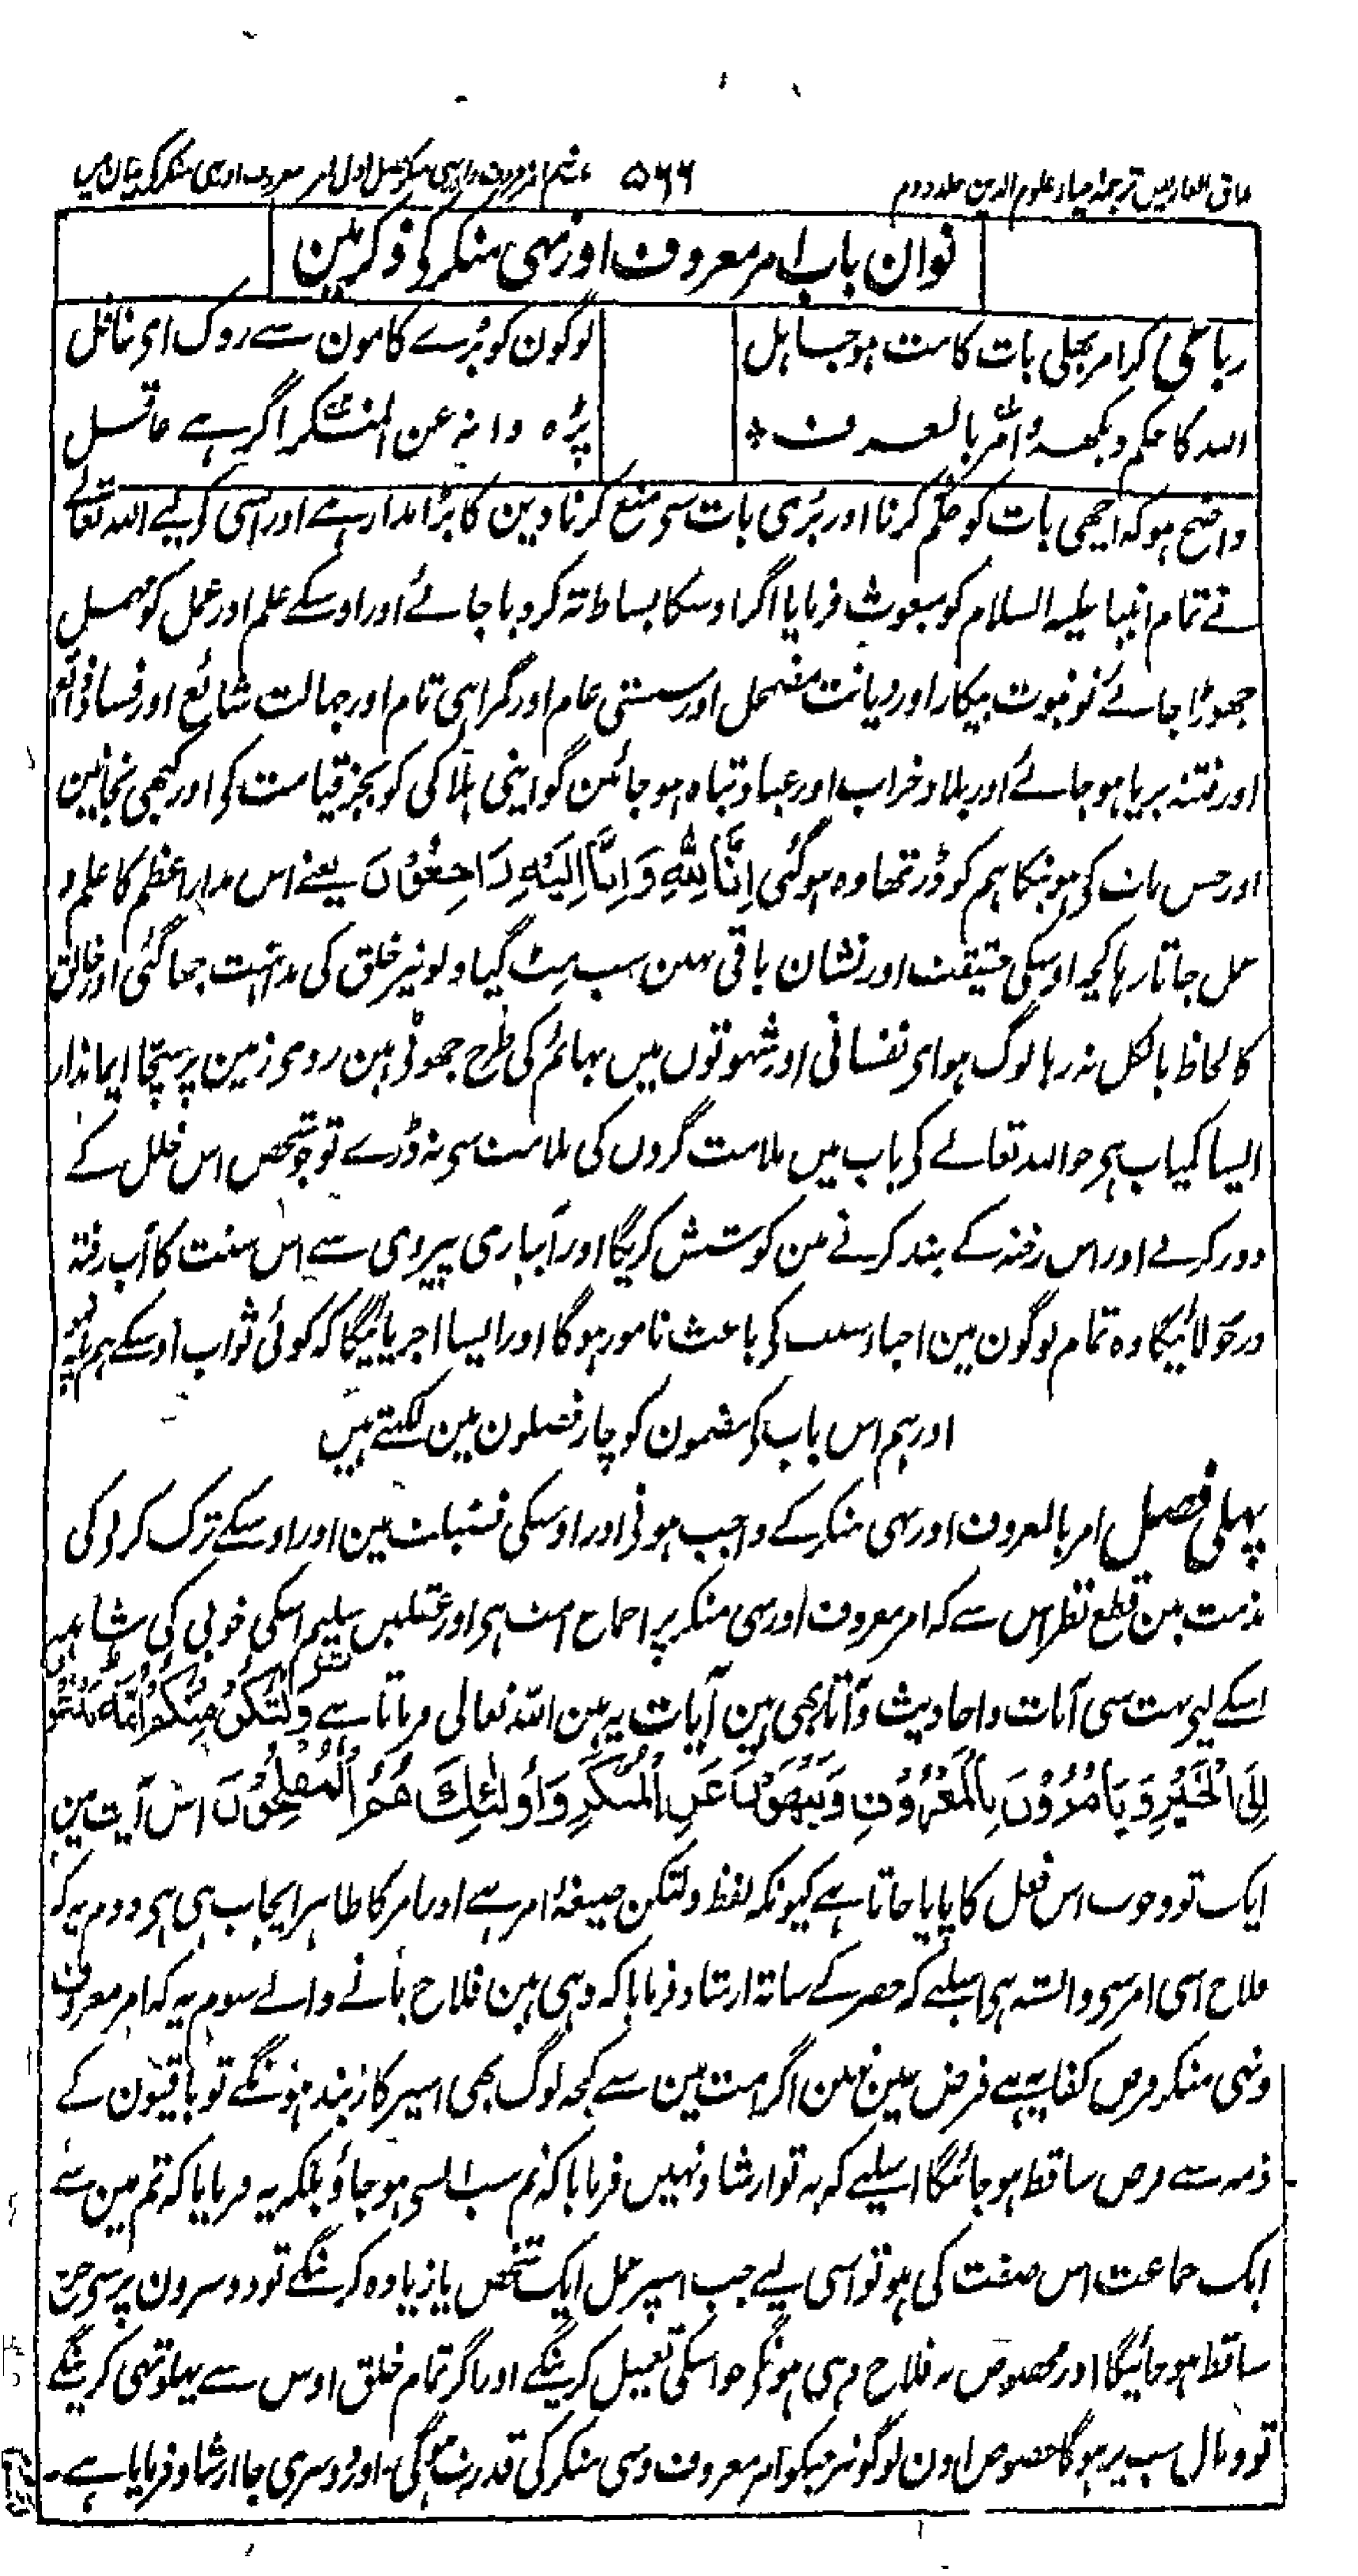 مذاق العارفین ترجمہ احیاء علوم الدین جلد دوم
۵۶۶
نوان باب امر معروف اور نہی منکر کی ذکر مین
رباعی کر امر بھلی بات کا مت ہو جاہل
لوگون کو بُرے کامون سے روک ای غافل
اللہ کا حکم دیکھہ وَأمُر بالعرف
پڑہ وانہ عن المنکر اگر ہے عاقل
واضح ہو کہ اچھی بات کو حکم کرنا اور بُری بات سی منع کرنا دین کا بڑا مدار ہے اور اسی کے لیے اللہ تعالے
نے تمام انبیا علیہ السلام کو مبعوث فرمایا اگر اوسکا بساط تہ کر دیا جائے اور اوسکے علم اور عمل کو مہمل
چھوڑا جائے تو نبوت بیکار اور دیانت مضمحل اور سستی عام اور گمراہی تمام اور جہالت شائع اور فساد ذائع
اور فتنہ برپا ہو جائے اور بلاد خراب اور عباد تباہ ہو جائین گو اپنی ہلاکی کو بجز قیامت کی اور کبھی نجانین
اور جس بات کی ہونیکا ہم کو ڈر تھا وہ ہو گئی اِنَّا لِلّٰہِ وَاِنَّا اِلَیْہِ رَاجِعُوْنَ یعنے اس مدار اعظم کا علم و
عمل جاتا رہا کچھ اوسکی حقیقت اور نشان باقی نہین سب مٹ گیا دلونپر خلق کی مداہنت چھا گئی اور خالق
کا لحاظ بالکل نہ رہا لوگ ہوای نفسانی اور شہوتوں میں بہائم کی طرح چھوٹی ہین روی زمین پر سچّا ایماندار
ایسا کمیاب ہی جو اللہ تعالے کی باب میں ملامت گروں کی ملامت سی نہ ڈرے تو جو شخص اس خلل کے
دور کرنے اور اس رخنہ کے بند کرنے مین کوشش کریگا اور آبیاری پیروی سے اس سنت کا آب رفتہ
در جو لائیگا وہ تمام لوگون مین احیاء سنت کی باعث نامور ہوگا اور ایسا اجر پائیگا کہ کوئی ثواب اوسکے ہم پلہ نہو
اور ہم اس باب کی مضمون کو چار فصلون مین لکہتے ہیں
پہلی فصل امر بالمعروف اور نہی منکر کے واجب ہونی اور اوسکی فضیلت مین اور اوسکے ترک کرنی کی
مذمت مین قطع نظر اس سے کہ امر معروف اور نہی منکر پر اجماع امت ہی اور عقلیں سلیم اسکی خوبی کی شاہد ہیں
اسکے لیے بہت سی آیات و احادیث و آثار بھی ہین آیات یہ ہین اللہ تعالی فرماتا ہے وَلْتَکُنْ مِنْکُمْ اُمَّۃٌ یَدْعُوْنَ
اِلَی الْخَیْرِ وَیَامُرُوْنَ بِالْمَعْرُوْفِ وَیَنْہَوْنَ عَنِ الْمُنْکَرِ وَاُولٰئِکَ ھُمُ الْمُفْلِحُوْنَ اس آیت مین
ایک تو وجوب اس فعل کا پایا جاتا ہے کیونکہ لفظ ولتکن صیغۂ امر ہے اور امر کا ظاہر ایجاب ہی ہی دوم یہ کہ
فلاح اسی امر سی وابستہ ہی اسلیے کہ حصر کے ساتھ ارشاد فرمایا کہ وہی ہین فلاح پانے والے سوم یہ کہ امر معروف
ونہی منکر فرض کفایہ ہے فرض عین نہین اگر امت مین سے کچھ لوگ بھی اسپر کاربند ہونگے تو باقیون کے
ذمہ سے فرض ساقط ہو جائیگا اسلیے کہ یہ تو ارشاد نہیں فرمایا کہ تم سب ایسی ہو جاؤ بلکہ یہ فرمایا کہ تم مین سے
ایک جماعت اس صفت کی ہو تو اسی لیے جب اسپر عمل ایک شخص یا زیادہ کرینگے تو دوسرون پر سی حرج
ساقط ہو جائیگا اور مخصوص بہ فلاح وہی ہونگی جو اسکی تعمیل کرینگے اور اگر تمام خلق اوس سے پہلوتہی کرینگے
تو وبال سب پر ہوگا خصوص اون لوگونپر جنکو امر معروف ونہی منکر کی قدرت ہوگی اور دوسری جا ارشاد فرمایا ہے۔